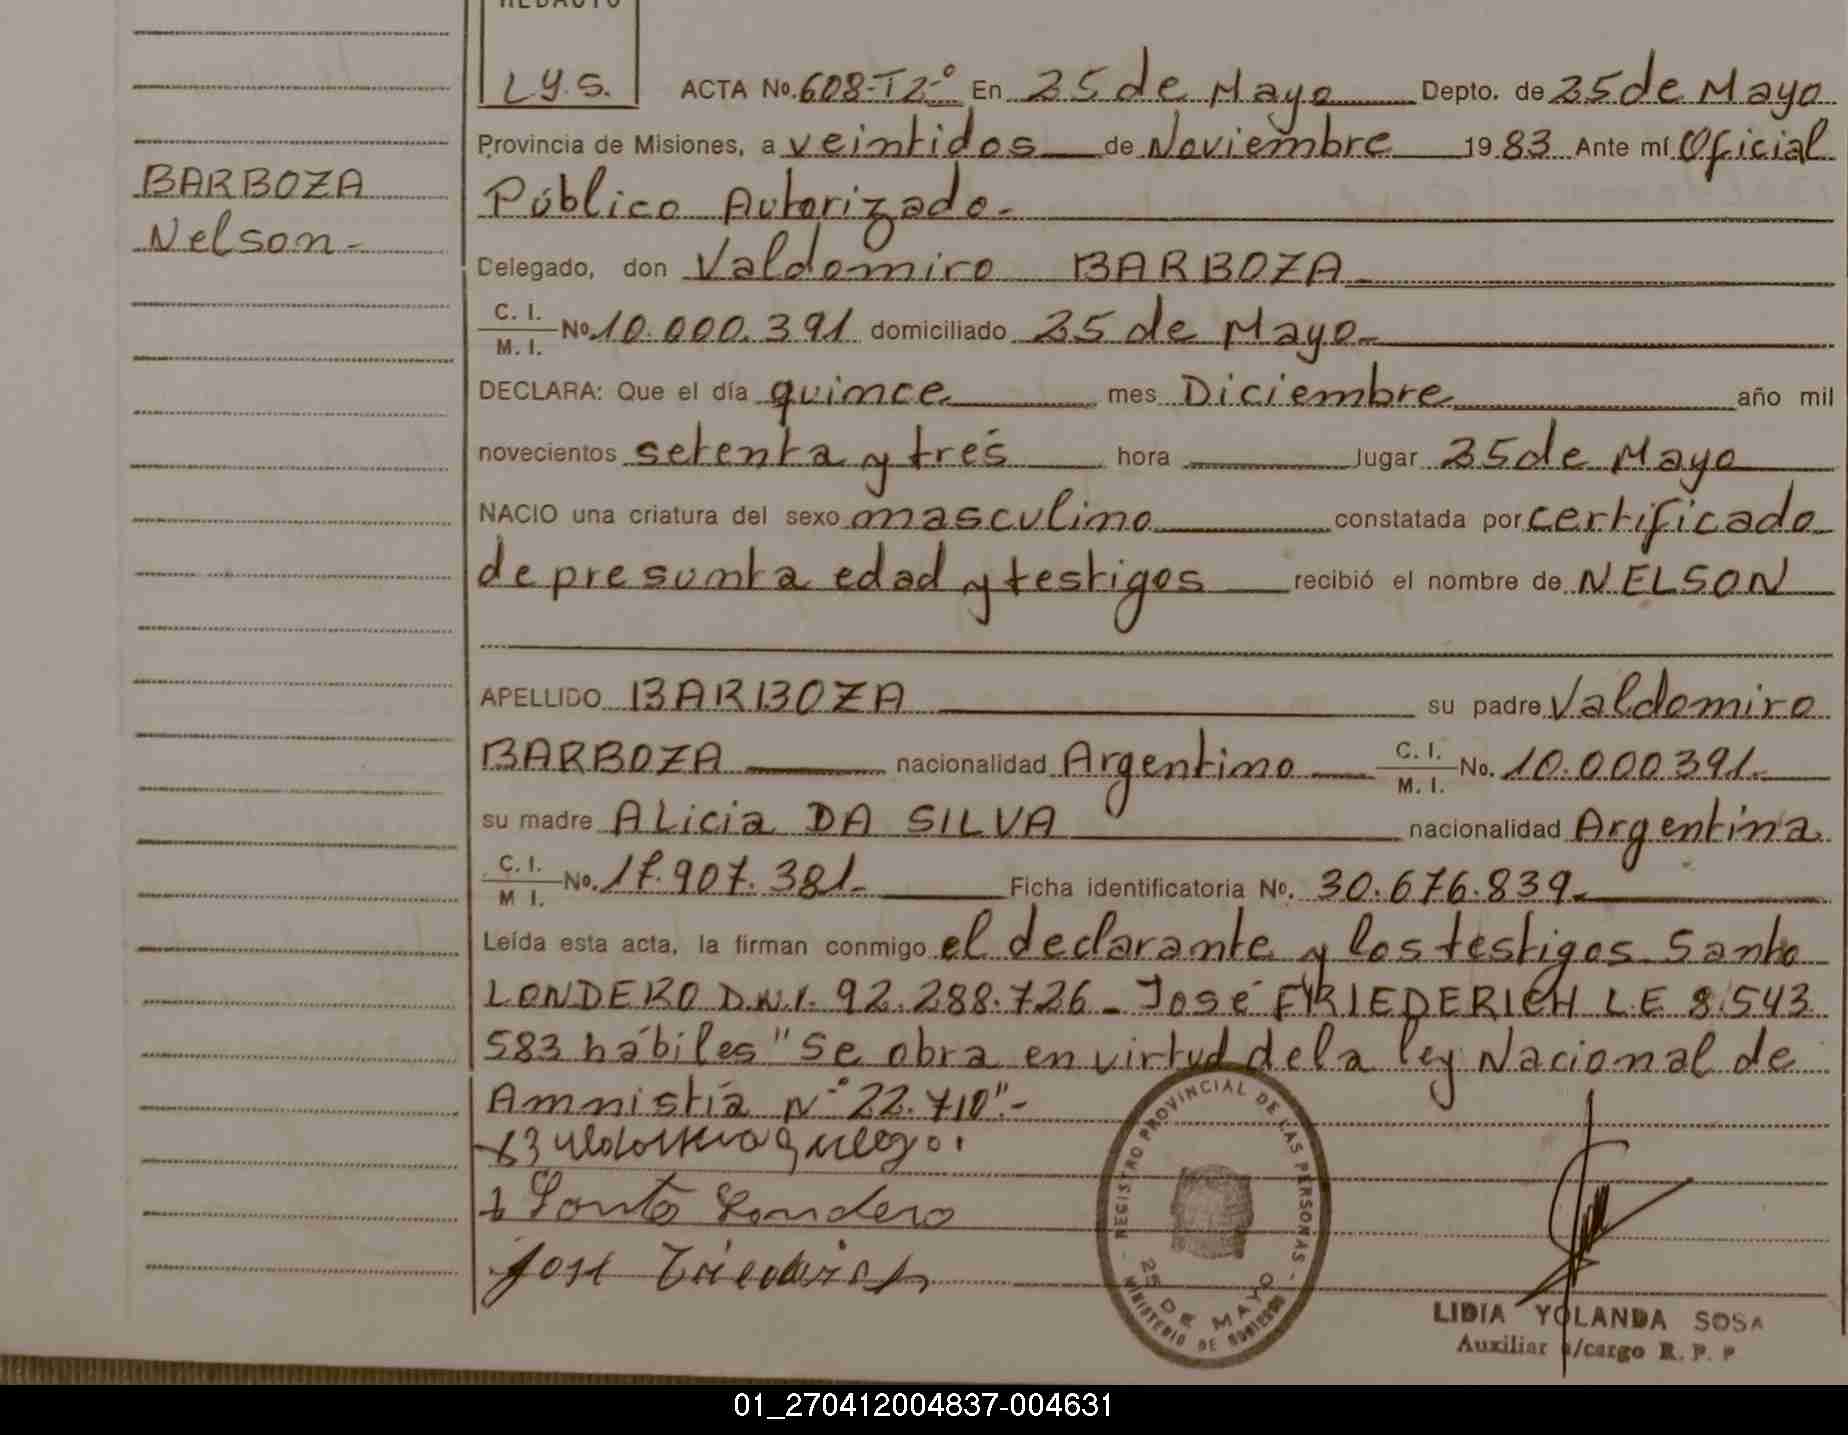 REDACTO
L.Y.S.
ACTA No. 608-T2-° En 25 de Mayo Depto. de 25 de Mayo
Provincia de Misiones, a veintidos de Noviembre 1983 Ante mí Oficial
BARBOZA
Público Autorizado.-
Nelson-
Delegado, don Valdomiro BARBOZA
C. I.
M. I. No. 10.000.391 domiciliado 25 de Mayo-
DECLARA: Que el día quince mes Diciembre año mil
novecientos setenta y tres hora lugar 25 de Mayo
NACIO una criatura del sexo masculino constatada por certificado
de presunta edad y testigos recibió el nombre de NELSON
APELLIDO BARBOZA su padre Valdomiro
BARBOZA nacionalidad Argentino C. I. M. I. No. 10.000391.
su madre ALicia DA SILVA nacionalidad Argentina
C. I. M I. No. 17.907.381- Ficha identificatoria No. 30.676.839-
Leída esta acta, la firman conmigo el declarante y los testigos Santo
LONDERO D.N.I. 92.288.726 - José FRIEDERICH L.E 8.543
583 hábiles "Se obra en virtud de la ley Nacional de
Amnistía N° 22.710".-
Santo Londero
Jose
REGISTRO PROVINCIAL DE LAS PERSONAS -
25 DE MAYO
MINISTERIO DE GOBIERNO
LIDIA YOLANDA SOSA
Auxiliar a/cargo R. P. P
01_270412004837-004631